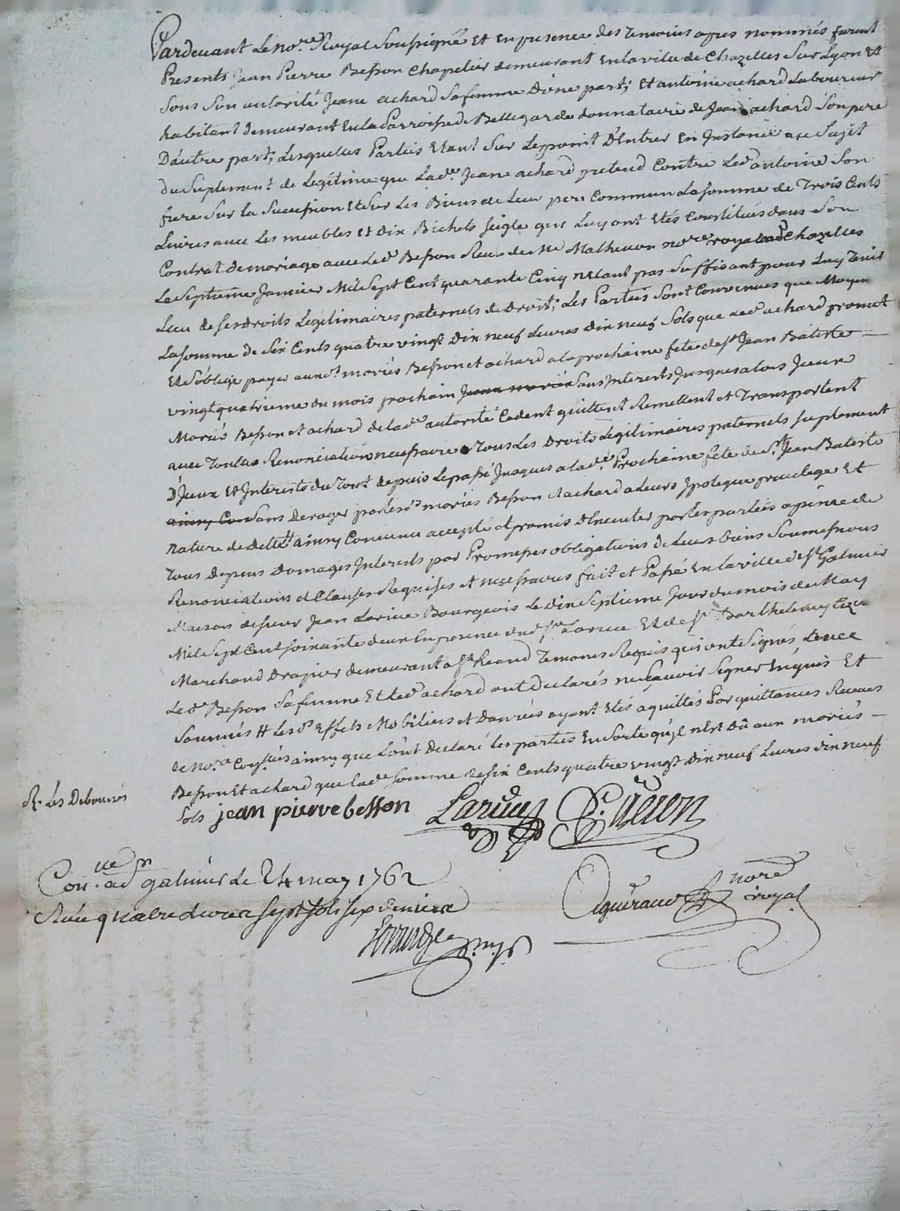 Pardevant Le no.re Royal Soussigné Et En presence des Temoins apres nommés furent
Presents Jean Pierre Besson Chapelier demeurant En la vile de Chazelles Sur Lyon Et
Sous Son autorité Jeane achard Sa femme D'une part; Et antoine achard Laboureur
habitant demeurant En la Parroisse de Bellegarde donnataire de Jean achard Son pere
D'autre part; Lesquelles Parties Etant Sur Le point D'Entrer En Instance au Sujet
du Suplement de Legitime que La de. Jeane achard pretend Contre Led. antoine Son
frere Sur La Succession Et Sur Les Biens de Leur pere Commun La somme de Trois Cents
Livres avec Les meubles et dix Bichets seigle que Luy ont Etés Constitués dans Son
Contrat de mariage avec Led. Besson Receu de Me Mathevon no.re royal aud. Chazelles
Le Septieme Janvier Mil Sept Cent quarante Cinq n'etant pas Suffisant pour Luy Tenir
Lieu de Ses Droits Legitimaires paternels de Droit; Les Parties Sont Convenues que Moyen
La somme de Six Cents quatre vingt Dix neuf Livres dix neuf Sols que Led. achard promet
Et S'oblige payer auxd. mariés Besson et achard a la prochaine fête de St. Jean Batiste
vingt quatrieme du mois prochain Sans Interets Jusques alors Iceux
Mariés Besson et achard de lad. autorité Cedent quittent Remettent et Transportent
avec Toutes Renonciations necessaires Tous Les Droits Legitimaires paternels suplement
D'Iceux Et Interests du Tout depuis Le passé Jusques a la de. Prochaine fete de St. Jean Batiste
Sans Deroger par Lesd. mariés Besson et achard a Leurs Ipoteque privilege Et
Nature de dette # ainsy Convenu accepté et promis D'Executer par Les parties a peine de
Tous Depens Domages Interests par Promesses obligations de Leurs biens Soumissions
Renonciations et Clauses Requises et necessaires fait et Passé En la ville de St. Galmier
Maison de sieur Jean Larive Bourgeois Le dix Septieme Jour du mois de May
Mil Sept Cent soixante deux En presence dud. Sr. Larive Et de Sr. Barthelemy
Marchand Drapier demeurant a St. Temoins Requis qui ont Signés avec
Led. Besson Sa femme Et Led. achard ont Declarés ne Scavoir Signer Enquis Et
Sommés # Les d. Effets Mobiliers et Danrées ayant Etés aquittés Par quittances Receues
de no.re ainsy que L'ont Declaré Les parties En sorte qu'il n'Est Dû aux mariés
Besson Et achard que La de. Somme de Six Cents quatre vingt Dix neuf Livres dix neuf
Sols jean pierre besson Larive
R. Les Debourés
Con.lle a St. galmier le 24 may 1762
Recu quatre livres sept sols six deniers
no.re royal